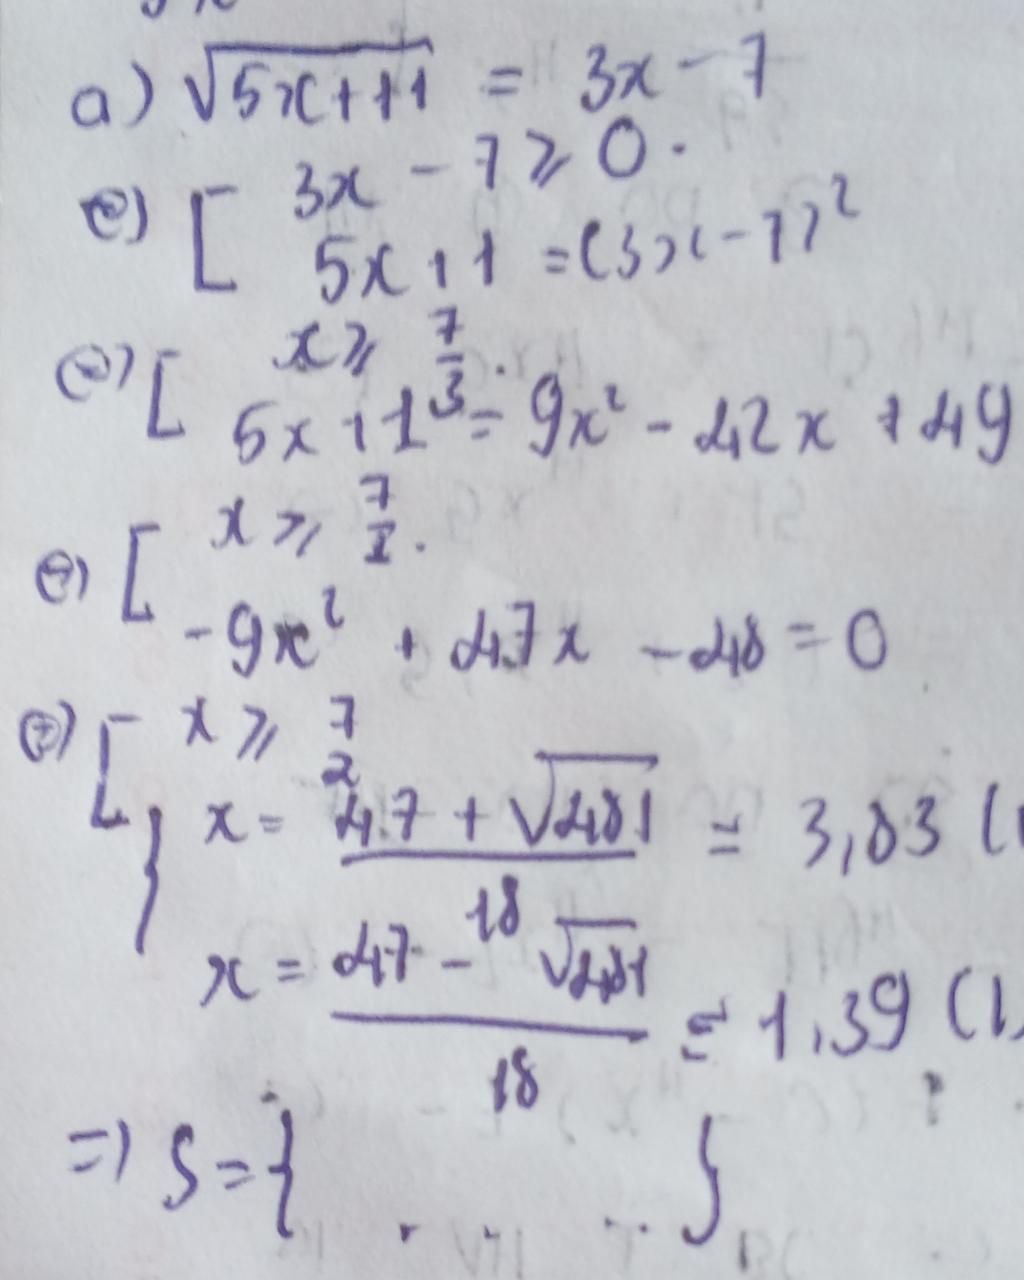 a) √5x+11 = 3x - 7
⇔ [ 3x - 7 ≥ 0.
5x + 1 = (3x - 7)²
⇔ [ x ≥ 7/3.
5x + 1 = 9x² - 42x + 49
⇔ [ x ≥ 7/2.
-9x² + 47x - 48 = 0
⇔ [ x ≥ 7/2
{ x = (47 + √481)/18 = 3,83 (
x = (47 - √481)/18 = 1,39 (
=> S = { . . . . . }